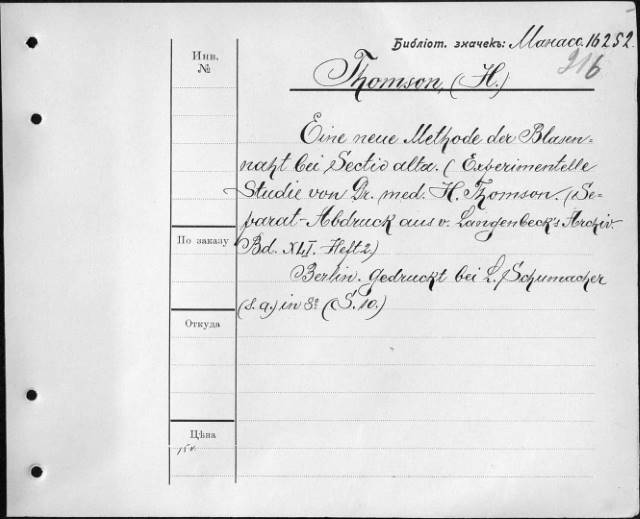 Библіот. значекъ: Манасс. 16252.
216
Инв.
№
Thomson, (H.)
Eine neue Methode der Blasen-
naht bei Sectio alta. (Experimentelle
Studie von Dr. med. H. Thomson. (Se-
parat-Abdruck aus v. Langenbeck's Archiv.
По заказу
Bd. XLI. Heft 2)
Berlin. Gedruckt bei L. Schumacher
(s. a.) in 8º (S. 10.)
Откуда
Цѣна
15к.